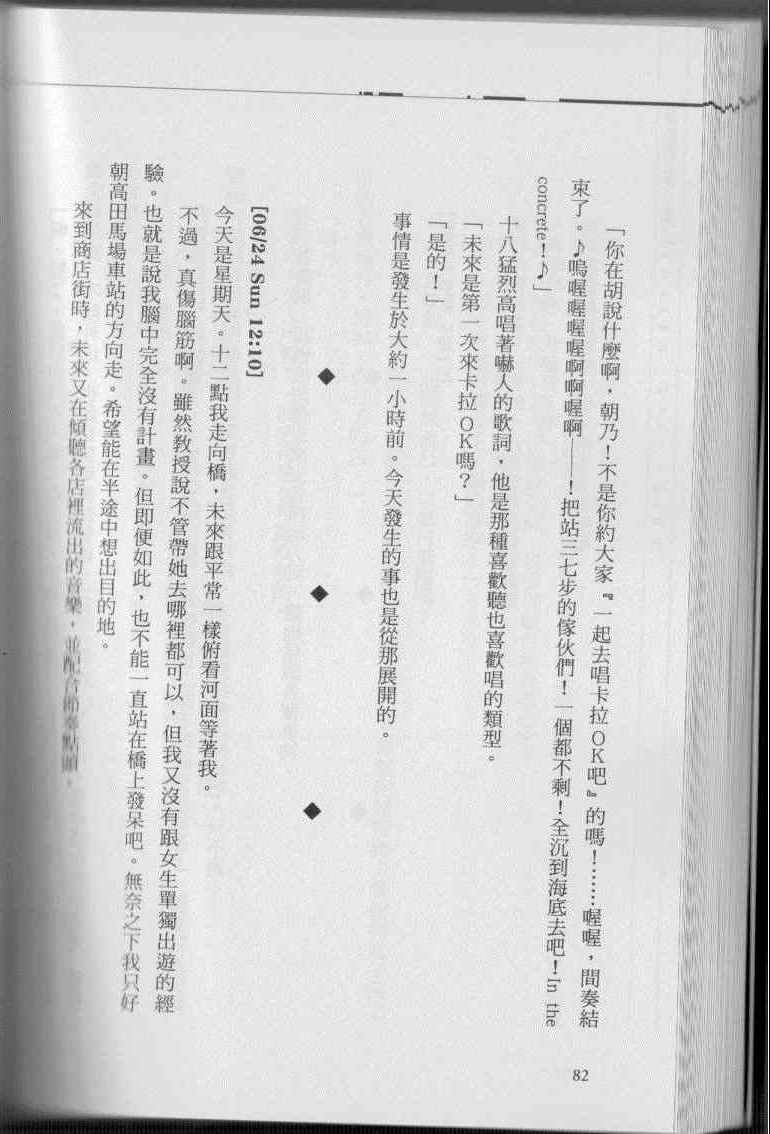 「你在胡說什麼啊，朝乃！不是你約大家『一起去唱卡拉ＯＫ吧』的嗎！……喔喔，間奏結
束了。♪嗚喔喔喔喔啊啊喔啊——！把站三七步的傢伙們！一個都不剩！全沉到海底去吧！In the
concrete！♪」
十八猛烈高唱著嚇人的歌詞，他是那種喜歡聽也喜歡唱的類型。
「未來是第一次來卡拉ＯＫ嗎？」
「是的！」
事情是發生於大約一小時前。今天發生的事也是從那展開的。
◆ ◆ ◆
[06/24 Sun 12:10]
今天是星期天。十二點我走向橋，未來跟平常一樣俯看河面等著我。
不過，真傷腦筋啊。雖然教授說不管帶她去哪裡都可以，但我又沒有跟女生單獨出遊的經
驗。也就是說我腦中完全沒有計畫。但即便如此，也不能一直站在橋上發呆吧。無奈之下我只好
朝高田馬場車站的方向走。希望能在半途中想出目的地。
來到商店街時，未來又在傾聽各店裡流出的音樂，並配合節奏點頭。
82